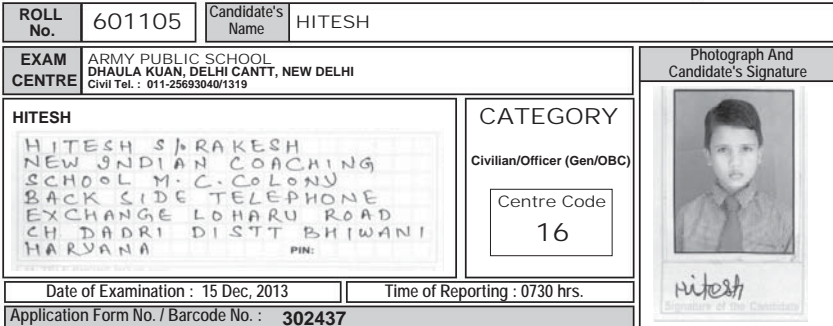 ROLL No. 601105 Candidate's Name HITESH
EXAM CENTRE ARMY PUBLIC SCHOOL
DHAULA KUAN, DELHI CANTT, NEW DELHI
Civil Tel. : 011-25693040/1319
Photograph And
Candidate's Signature
HITESH
HITESH S/o RAKESH
NEW INDIAN COACHING
SCHOOL M.C. COLONY
BACK SIDE TELEPHONE
EXCHANGE LOHARU ROAD
CH DADRI DISTT BHIWANI
HARYANA PIN:
CATEGORY
Civilian/Officer (Gen/OBC)
Centre Code
16
Hitesh
Signature of the Candidate
Date of Examination : 15 Dec, 2013 Time of Reporting : 0730 hrs.
Application Form No. / Barcode No. : 302437